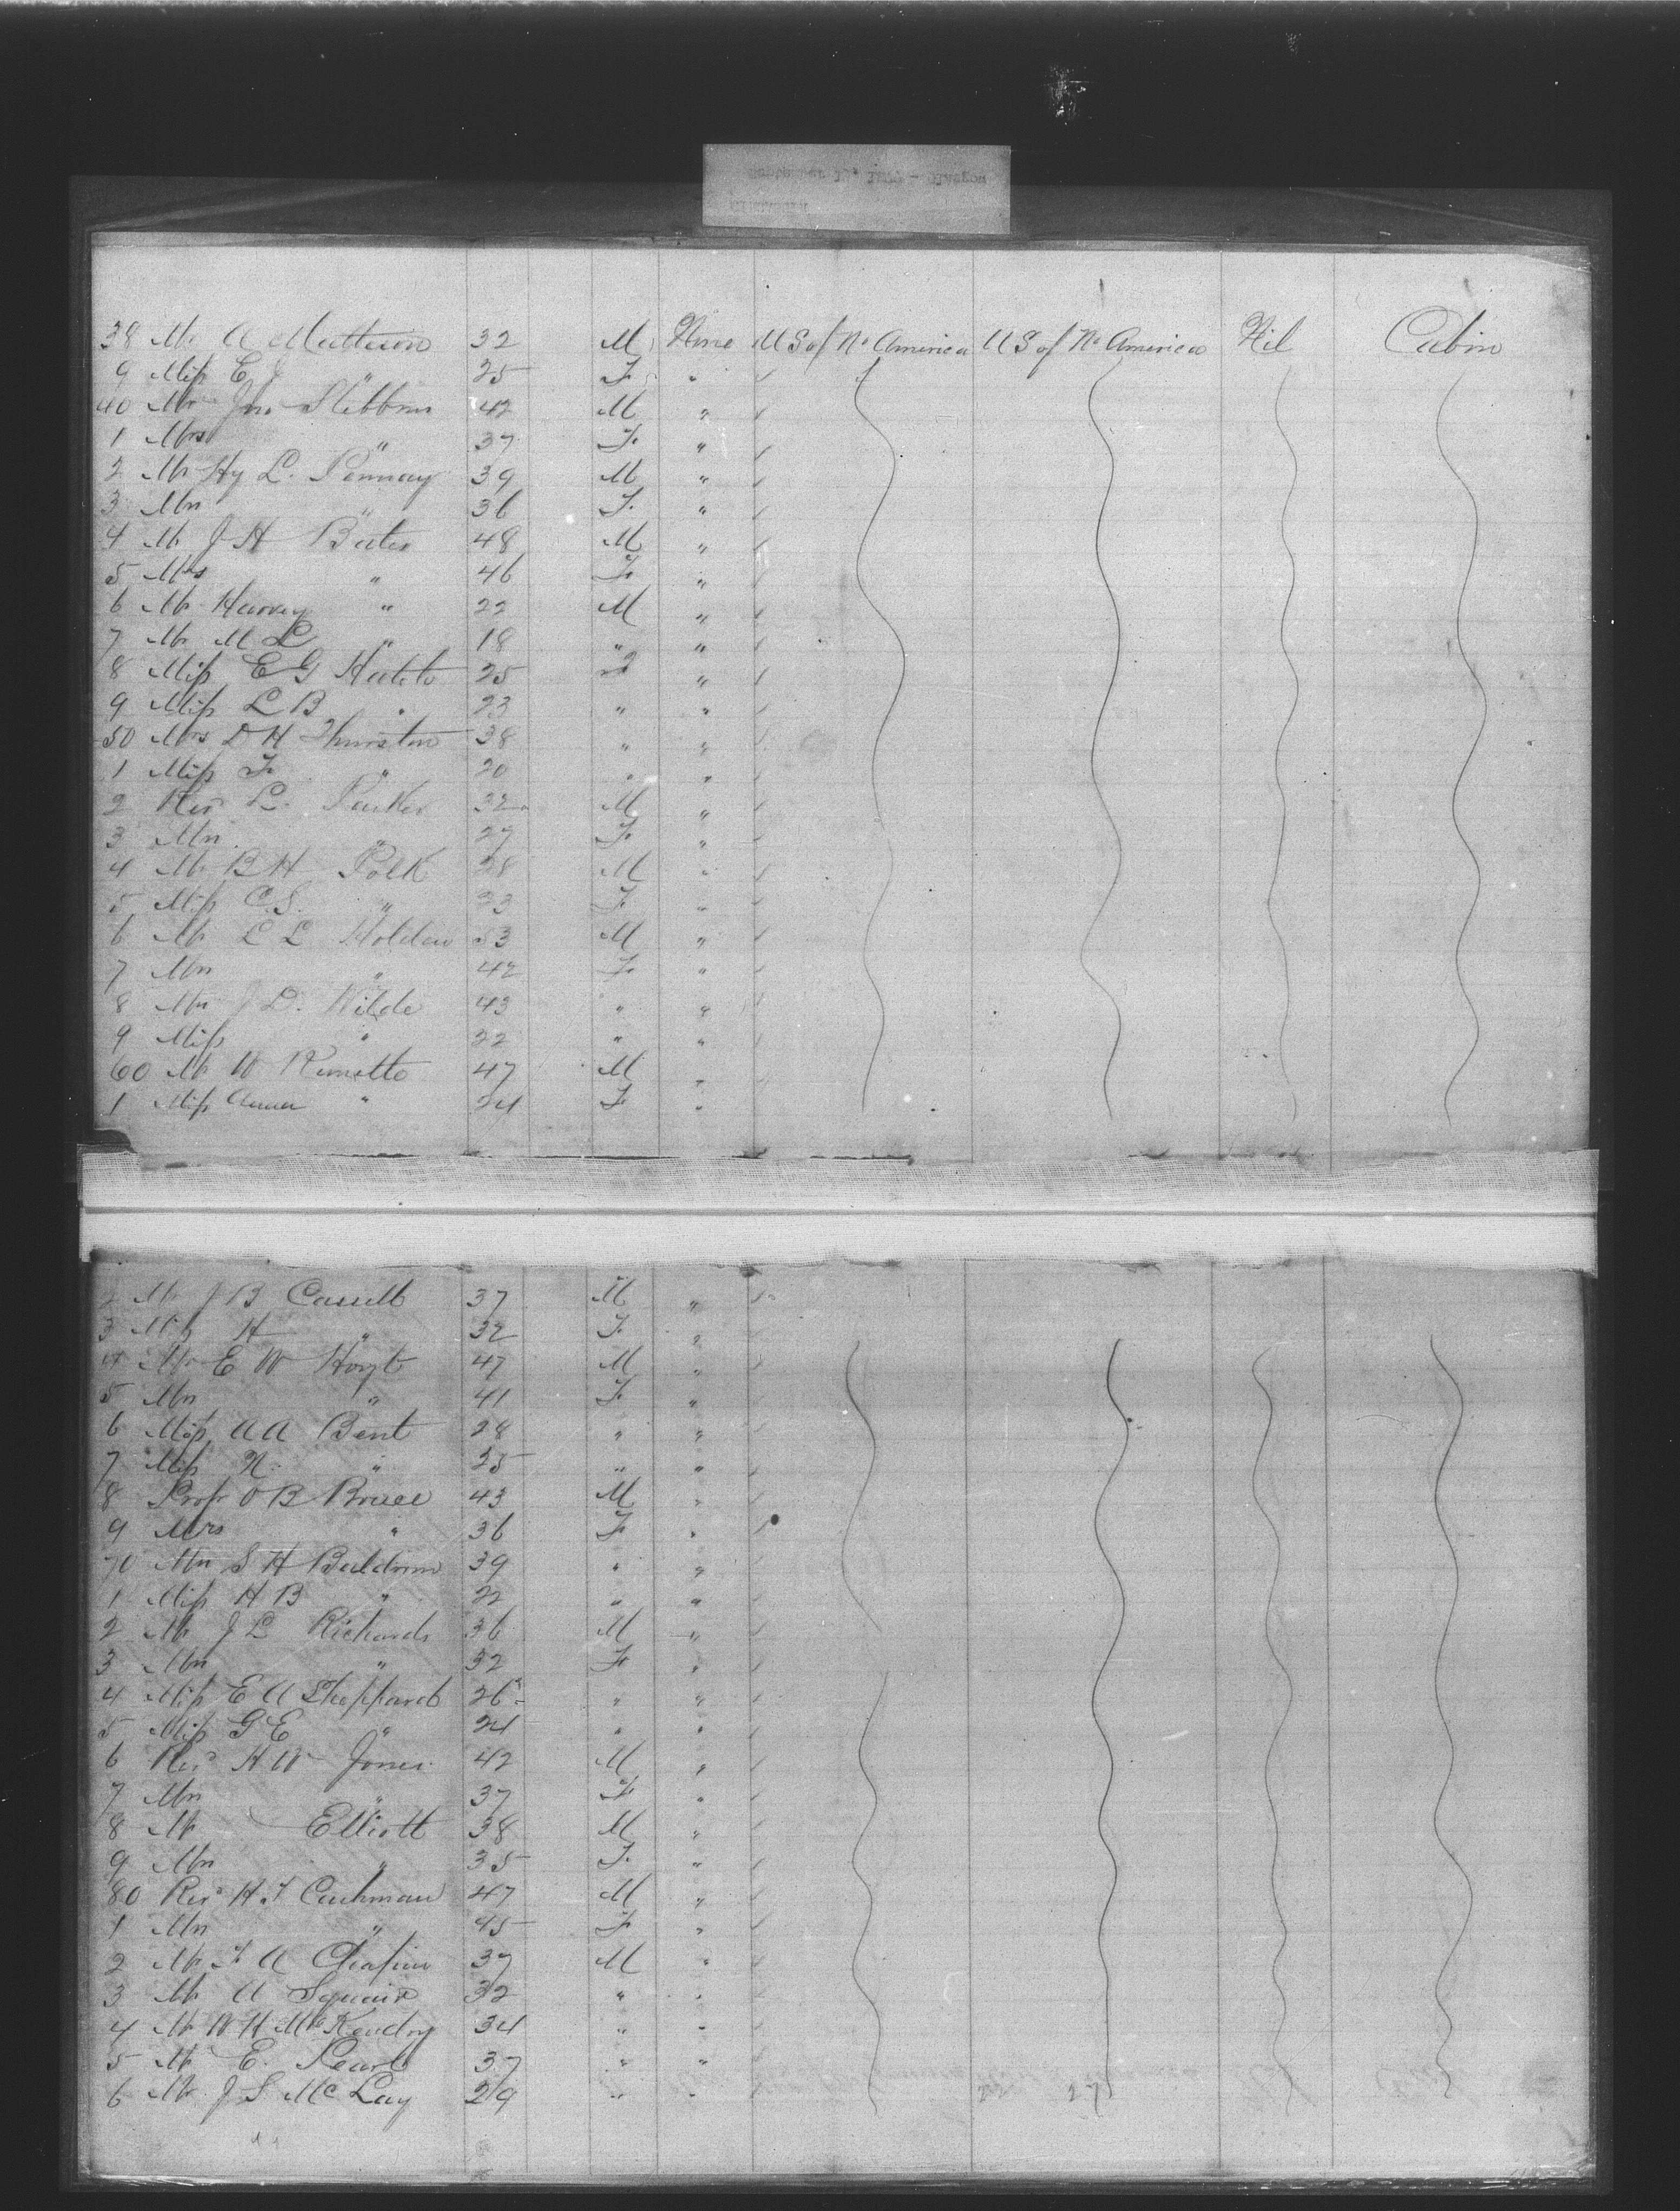 38 Mr A Matteson 32 M None U S of No America U S of No America Nil Cabin
9 Miss E J " 25 F "
40 Mr Jno Stebbins 42 M "
1 Mrs " 37 F "
2 Mr Hy L. 39 M "
3 Mrs " 36 F. "
4 Mr J H Bates 48 M "
5 Mrs " 46 F "
6 Mr Harvey " 22 M "
7 Mr M L " 18 " "
8 Miss E G 25 F "
9 Miss L B " 23 " "
50 Mrs D H Thurston 38 " "
1 Miss F. " 20 " "
2 Revd L. Parker 32 M "
3 Mrs " 27 F. "
4 Mr B H Polk 28 M "
5 Miss C.S. " 23 F "
6 Mr L L Holden 53 M "
7 Mrs " 42 F "
8 Mrs J D. Wilde 43 " "
9 Miss " 22 " "
60 Mr W 47 M "
1 Miss Anna " 24 F "
2 Mr J B 37 M "
3 H " 32 F. "
4 Mr E W Hoyt 47 M "
5 Mrs " 41 F. "
6 Miss A A Bent 28 " "
7 Miss N. " 25 " "
8 Profr O B Bruce 43 M "
9 Mrs " 36 F "
70 Mrs S H Baldwin 39 " "
1 Miss H B " 22 " "
2 Mr J L Richards 36 M "
3 Mrs " 32 F "
4 Miss E A Sheppard 26 " "
5 Miss G E " 24 " "
6 Revd H W Jones 42 M "
7 Mrs " 37 F "
8 Mr Elliott 38 M "
9 Mrs " 35 F. "
80 Revd H. T Cushman 47 M "
1 Mrs " 45 F "
2 Mr F A Chapin 37 M "
3 Mr A Squair 32 " "
4 Mr W H McKendry 34 " "
5 Mr E. Pearl 37 " "
6 Mr J S McLay 29 " "